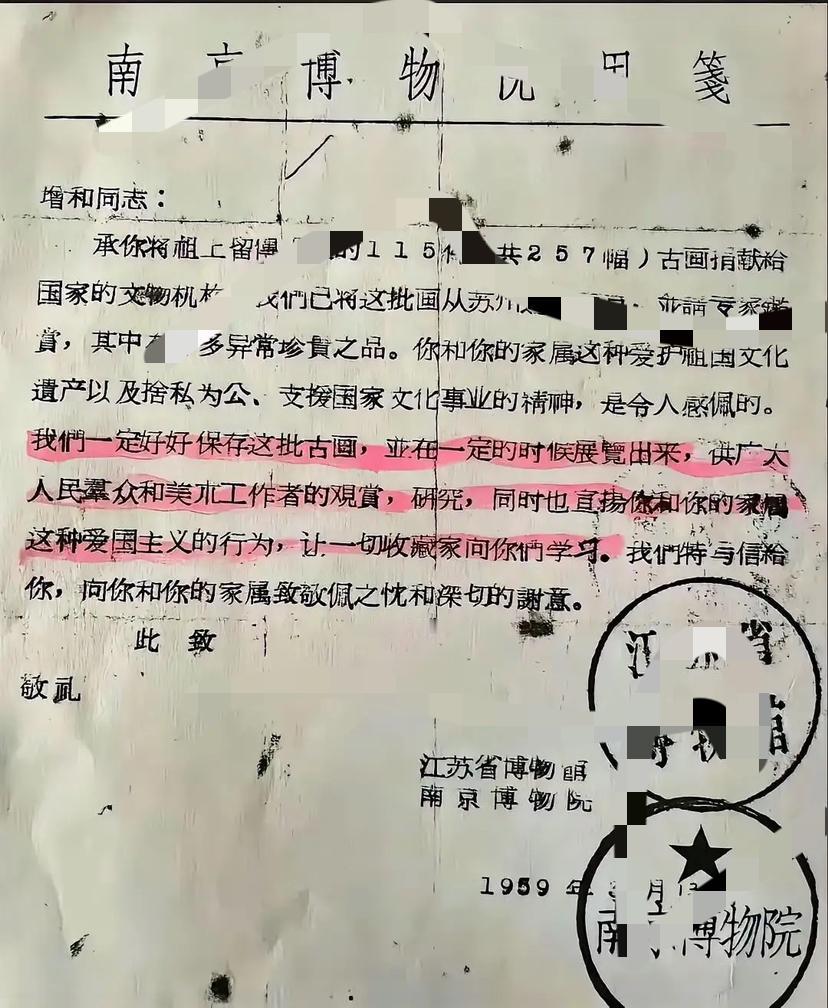 南 博物 笺
增和同志：
承你将祖上留傳 的115 共257幅）古画捐献给
国家的文物机 我們已将这批画从苏州 並請专家鑑
賞，其中 多异常珍貴之品。你和你的家属这种爱护祖国文化
遺产以及捨私为公、支援国家文化事业的精神，是令人感佩的。
我們一定好好保存这批古画，並在一定的时候展覽出来，供广大
人民羣众和美朮工作者的观賞，研究，同时也直揚你和你的家属
这种爱国主义的行为，让一切收藏家向你們学习。我們特与信給
你，向你和你的家属致敬佩之忱和深切的謝意。
此致
敬礼
江 省
江苏省博物
南京博物院
1959年 月
南 博物院